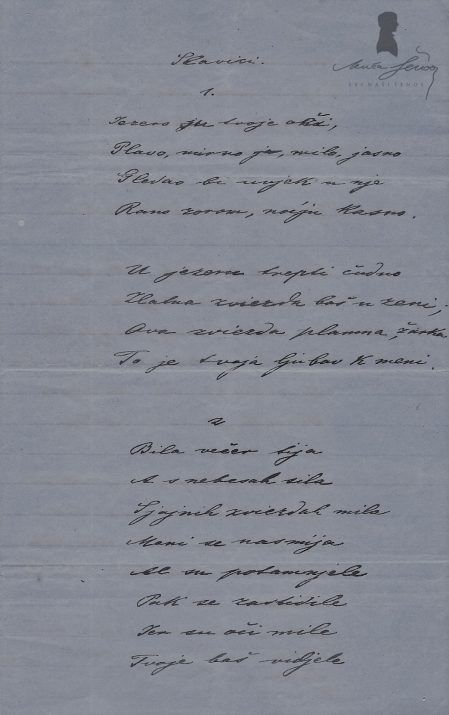 Slavici.
1.
Jezero je tvoje oko,
Plavo, mirno je, milo, jasno
Gledao bi uvjek u nje
Rano zorom, noćju kasno.
U jezeru trepti čudno
Zlatna zviezda baš u zeni,
Ova zviezda plamna, žarka
To je tvoja ljubav k meni.
2
Bila večer tija
A s nebesah sila
Sjajnih zviezdah mila
Meni se nasmija
Al su potamnjele
Pak se zastidile
Jer su oči mile
Tvoje baš vidjele